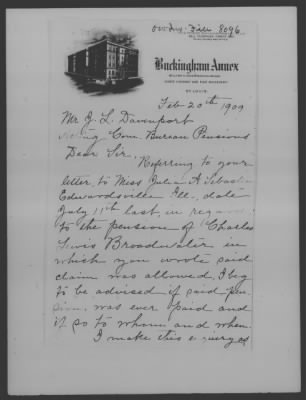 8096
Buckingham Annex
St. Louis
Feb 20th 1909
Mr J. L. Davenport
Com. Bureau Pensions
Dear Sir.
Referring to your
letter to Miss Julia A.
Edwardsville Ill. date
July 11th last, in
to the pension of Charles
Lewis Broadwater in
which you wrote said
claim was allowed, I beg
to be advised if said pen
was ever paid and
if so to whom and when.
I make this